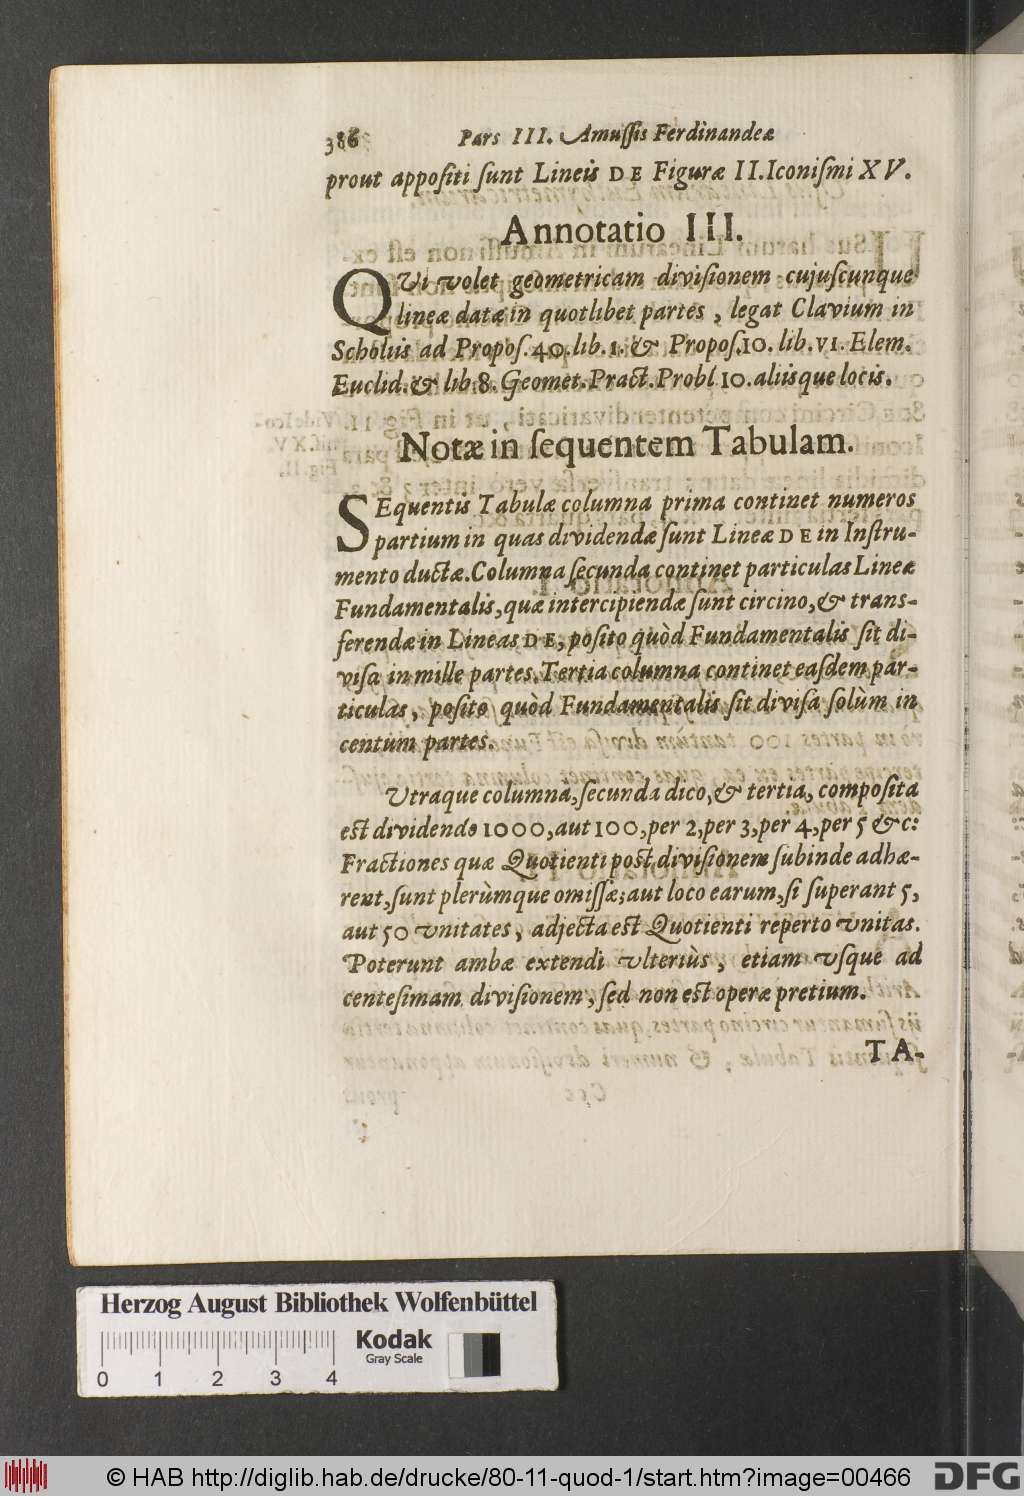 386 Pars III. Amuſſis Ferdinandeæ
prout appoſiti ſunt Lineis DE Figuræ II. Iconiſmi XV.
Annotatio III.
QVi volet geometricam diviſionem cujuſcunque
lineæ datæ in quotlibet partes, legat Clavium in
Scholiis ad Propoſ. 40. lib. 1. & Propoſ. 10. lib. VI. Elem.
Euclid. & lib. 8. Geomet. Pract. Probl. 10. aliisque locis.
Notæ in ſequentem Tabulam.
SEquentis Tabulæ columna prima continet numeros
partium in quas dividendæ ſunt Lineæ DE in Inſtru-
mento ductæ. Columna ſecunda continet particulas Lineæ
Fundamentalis, quæ intercipiendæ ſunt circino, & trans-
ferendæ in Lineas DE, poſito quòd Fundamentalis ſit di-
viſa in mille partes. Tertia columna continet eaſdem par-
ticulas, poſito quòd Fundamentalis ſit diviſa ſolùm in
centum partes.
Utraque columna, ſecunda dico, & tertia, compoſita
est dividendo 1000, aut 100, per 2, per 3, per 4, per 5 &c:
Fractiones quæ Quotienti post diviſionem ſubinde adhæ-
rent, ſunt plerùmque omiſſæ; aut loco earum, ſi ſuperant 5,
aut 50 vnitates, adjecta est Quotienti reperto vnitas.
Poterunt ambæ extendi vlteriùs, etiam vſque ad
centeſimam diviſionem, ſed non est operæ pretium.
TA-
Herzog August Bibliothek Wolfenbüttel
Kodak
Gray Scale
0 1 2 3 4
© HAB http://diglib.hab.de/drucke/80-11-quod-1/start.htm?image=00466
DFG